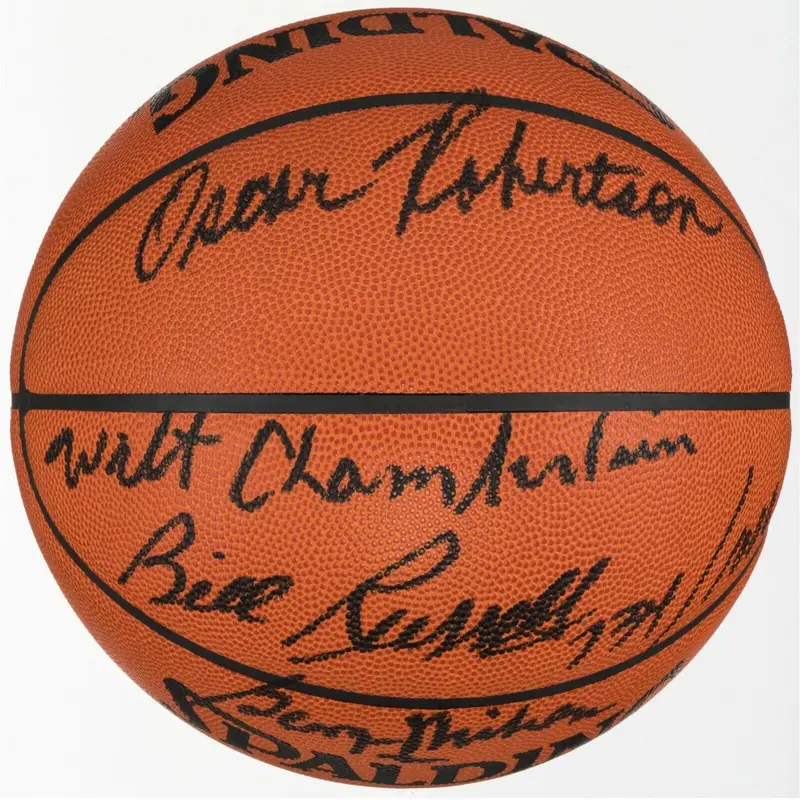 SPALDING
Oscar Robertson
Wilt Chamberlain
Bill Russell
George Mikan
SPALDING